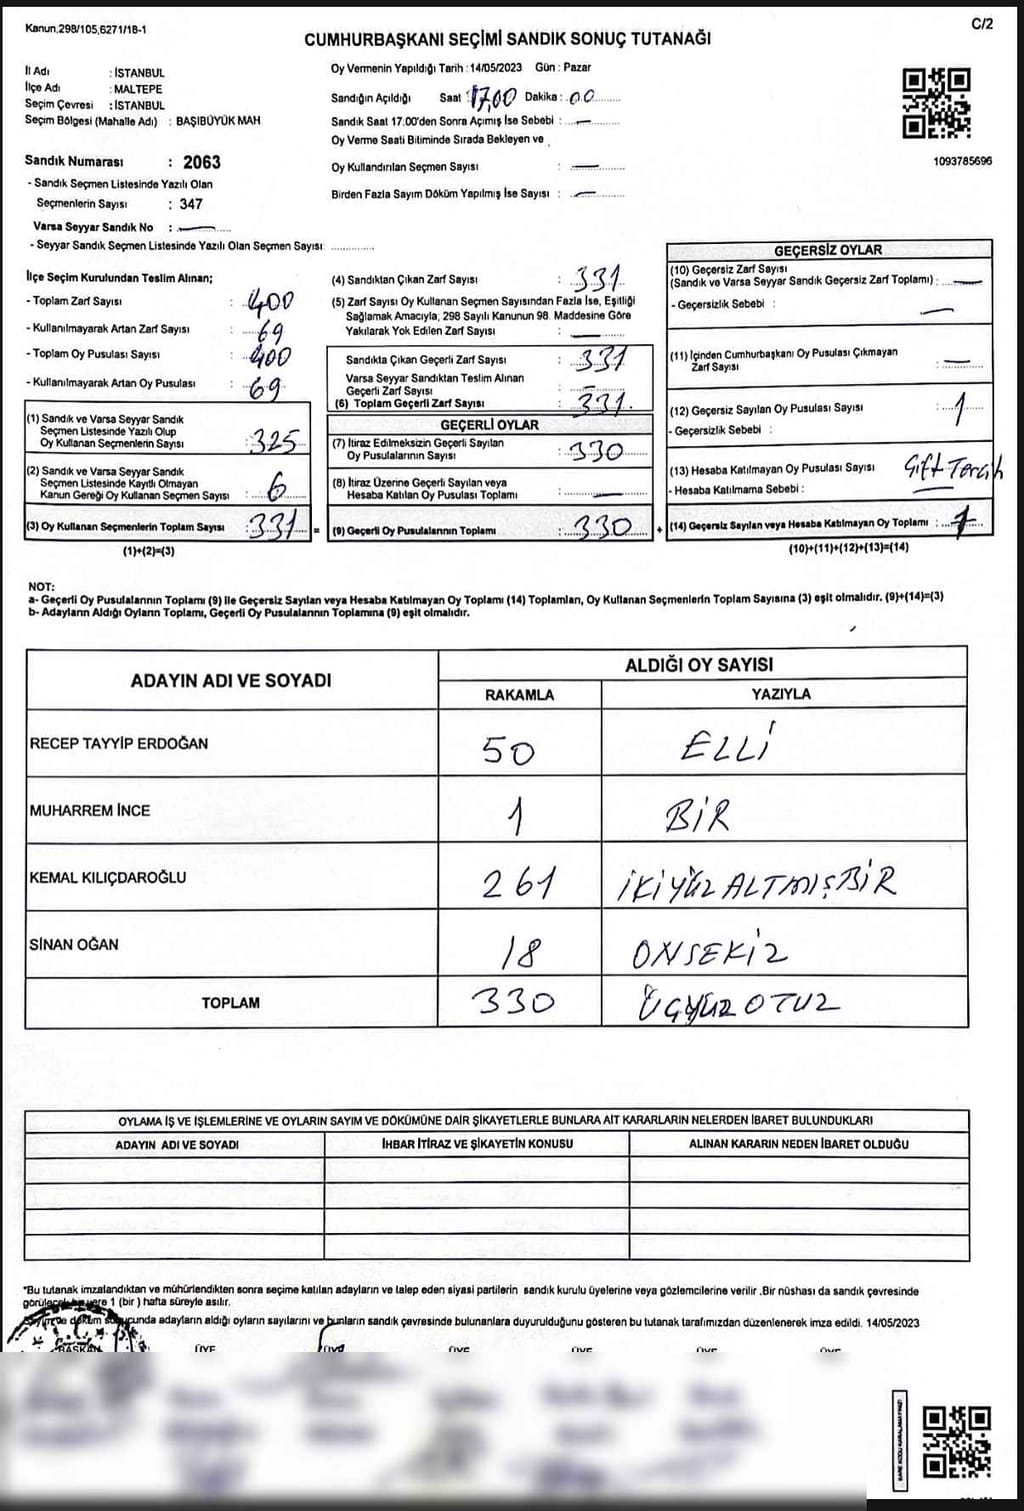 Kanun,298/105,6271/18-1
C/2
CUMHURBAŞKANI SEÇİMİ SANDIK SONUÇ TUTANAĞI
İl Adı : İSTANBUL
İlçe Adı : MALTEPE
Seçim Çevresi : İSTANBUL
Seçim Bölgesi (Mahalle Adı) : BAŞIBÜYÜK MAH
Sandık Numarası : 2063
- Sandık Seçmen Listesinde Yazılı Olan
Seçmenlerin Sayısı : 347
Varsa Seyyar Sandık No : —
- Seyyar Sandık Seçmen Listesinde Yazılı Olan Seçmen Sayısı: ..............
Oy Vermenin Yapıldığı Tarih : 14/05/2023 Gün : Pazar
Sandığın Açıldığı Saat : 17,00 Dakika : 00
Sandık Saat 17:00'den Sonra Açılmış İse Sebebi : —
Oy Verme Saati Bitiminde Sırada Bekleyen ve
Oy Kullandırılan Seçmen Sayısı : —
Birden Fazla Sayım Döküm Yapılmış İse Sayısı : —
1093785696
İlçe Seçim Kurulundan Teslim Alınan;
- Toplam Zarf Sayısı : 400
- Kullanılmayarak Artan Zarf Sayısı : 69
- Toplam Oy Pusulası Sayısı : 400
- Kullanılmayarak Artan Oy Pusulası : 69
(1) Sandık ve Varsa Seyyar Sandık
Seçmen Listesinde Yazılı Olup
Oy Kullanan Seçmenlerin Sayısı : 325
(2) Sandık ve Varsa Seyyar Sandık
Seçmen Listesinde Kayıtlı Olmayan
Kanun Gereği Oy Kullanan Seçmen Sayısı : 6
(3) Oy Kullanan Seçmenlerin Toplam Sayısı : 331 =
(1)+(2)=(3)
(4) Sandıktan Çıkan Zarf Sayısı : 331
(5) Zarf Sayısı Oy Kullanan Seçmen Sayısından Fazla İse, Eşitliği
Sağlamak Amacıyla, 298 Sayılı Kanunun 98. Maddesine Göre
Yakılarak Yok Edilen Zarf Sayısı : —
Sandıkta Çıkan Geçerli Zarf Sayısı : 331
Varsa Seyyar Sandıktan Teslim Alınan
Geçerli Zarf Sayısı : —
(6) Toplam Geçerli Zarf Sayısı : 331
GEÇERLİ OYLAR
(7) İtiraz Edilmeksizin Geçerli Sayılan
Oy Pusulalarının Sayısı : 330
(8) İtiraz Üzerine Geçerli Sayılan veya
Hesaba Katılan Oy Pusulası Toplamı : —
(9) Geçerli Oy Pusulalarının Toplamı : 330 +
GEÇERSİZ OYLAR
(10) Geçersiz Zarf Sayısı
(Sandık ve Varsa Seyyar Sandık Geçersiz Zarf Toplamı) : —
- Geçersizlik Sebebi : —
(11) İçinden Cumhurbaşkanı Oy Pusulası Çıkmayan
Zarf Sayısı : —
(12) Geçersiz Sayılan Oy Pusulası Sayısı : 1
- Geçersizlik Sebebi :
(13) Hesaba Katılmayan Oy Pusulası Sayısı Çift Tercih
- Hesaba Katılmama Sebebi : —
(14) Geçersiz Sayılan veya Hesaba Katılmayan Oy Toplamı : 1
(10)+(11)+(12)+(13)=(14)
NOT:
a- Geçerli Oy Pusulalarının Toplamı (9) ile Geçersiz Sayılan veya Hesaba Katılmayan Oy Toplamı (14) Toplamları, Oy Kullanan Seçmenlerin Toplam Sayısına (3) eşit olmalıdır. (9)+(14)=(3)
b- Adayların Aldığı Oyların Toplamı, Geçerli Oy Pusulalarının Toplamına (9) eşit olmalıdır.
ADAYIN ADI VE SOYADI
ALDIĞI OY SAYISI
RAKAMLA YAZIYLA
RECEP TAYYİP ERDOĞAN 50 ELLİ
MUHARREM İNCE 1 BİR
KEMAL KILIÇDAROĞLU 261 İKİYÜZALTMIŞBİR
SİNAN OĞAN 18 ONSEKİZ
TOPLAM 330 ÜÇYÜZOTUZ
OYLAMA İŞ VE İŞLEMLERİNE VE OYLARIN SAYIM VE DÖKÜMÜNE DAİR ŞİKAYETLERLE BUNLARA AİT KARARLARIN NELERDEN İBARET BULUNDUKLARI
ADAYIN ADI VE SOYADI İHBAR İTİRAZ VE ŞİKAYETİN KONUSU ALINAN KARARIN NEDEN İBARET OLDUĞU
*Bu tutanak imzalandıktan ve mühürlendikten sonra seçime katılan adayların ve talep eden siyasi partilerin sandık kurulu üyelerine veya gözlemcilerine verilir .Bir nüshası da sandık çevresinde
görülecek bir yere 1 (bir ) hafta süreyle asılır.
ve döküm sonucunda adayların aldığı oyların sayılarını ve bunların sandık çevresinde bulunanlara duyurulduğunu gösteren bu tutanak tarafımızdan düzenlenerek imza edildi. 14/05/2023
BAŞKAN ÜYE ÜYE ÜYE ÜYE ÜYE ÜYE